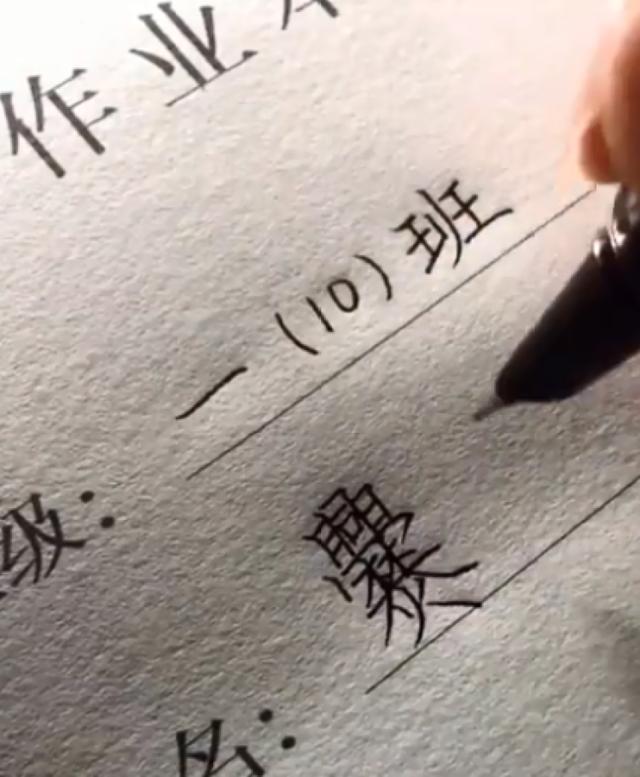 作业
级：一（10）班
名：